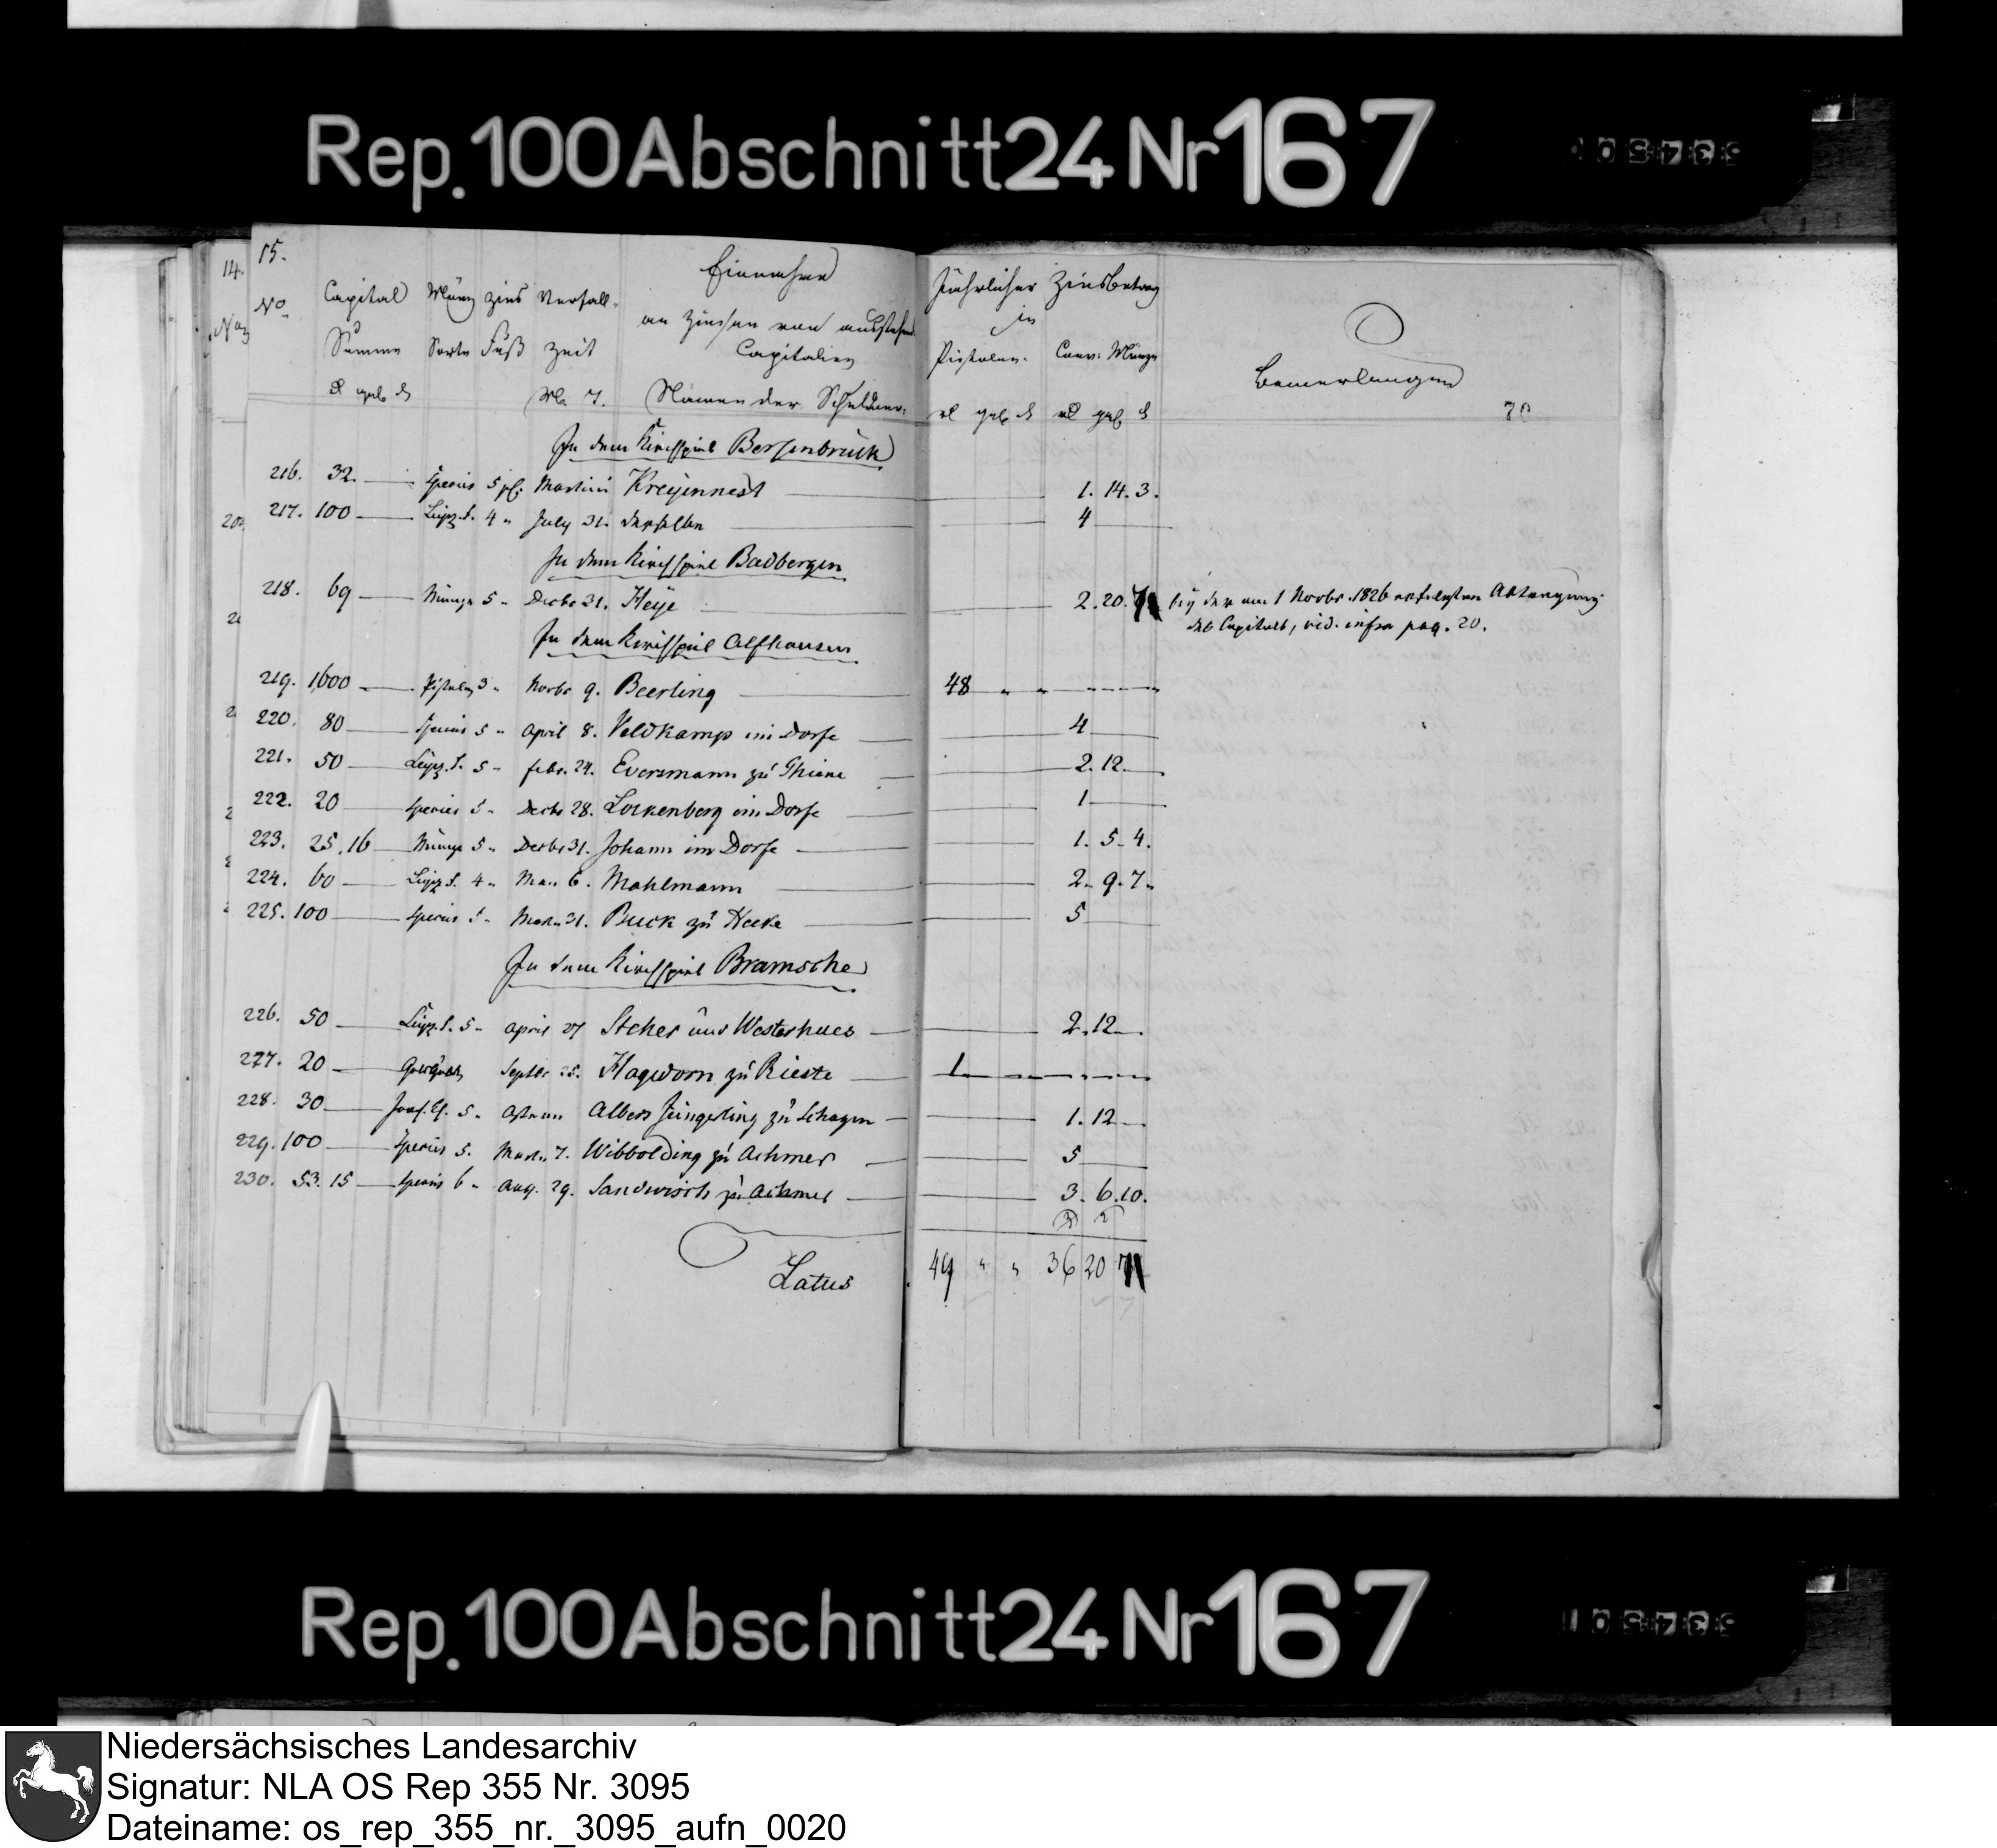 Rep. 100 Abschnitt 24 Nr 167
14.
15.
No.
Capital Münz Zins Verfall-
Summe Sorte Fuß zeit
Einnahme
an Zinsen von
Capitalien
Namen der Schuldner.
Jährlicher Zinsbetrag
in
Pistolen. Conv: Münze
Bemerkungen
In dem Kirchspiel Bersenbrück
216. 32. Species 5 pC. Martini Kreyennest 1. 14. 3.
217. 100 Leipz. S. 4 " July 31. derselbe 4
In dem Kirchspiel Badbergen
218. 69 Münze 5 " Decbr 31. Heye 2. 20. bey der am 1 Novbr. 1826 erfolgten
des Capitals, vid. infra pag. 20.
In dem Kirchspiel Alfhausen
219. 1600 Pistolen 3 " Novbr 9. Beerling 48 " "
220. 80 Species 5 " April 8. Veldkamp im Dorfe 4
221. 50 Leipz. S. 5 " Febr. 24. Eversmann zu Thiene 2. 12.
222. 20 Species 5 " Decbr 28. Lockenberg im Dorfe 1
223. 25. 16 Münze 5 " Decbr 31. Johann im Dorfe 1. 5. 4.
224. 60 Leipz S. 4 " 6. Mahlmann 2. 9. 7.
225. 100 Species 5 " 31. Buck zu Hecke 5
In dem Kirchspiel Bramsche
226. 50 Leipz. S. 5 " April 27 und 2. 12.
277. 20 Septbr 25. Hagedorn zu Rieste 1
228. 30 5 " Ostern Albers Jüngerling zu Schagen 1. 12.
229. 100 Species 5. 7. Wibbolding zu Achmer 5
230. 53. 15 Species 6 " Aug. 29. Sandwisch zu Achmer 3. 6. 10.
Latus 49 " " 36 20
Rep. 100 Abschnitt 24 Nr 167
Niedersächsisches Landesarchiv
Signatur: NLA OS Rep 355 Nr. 3095
Dateiname: os_rep_355_nr._3095_aufn_0020